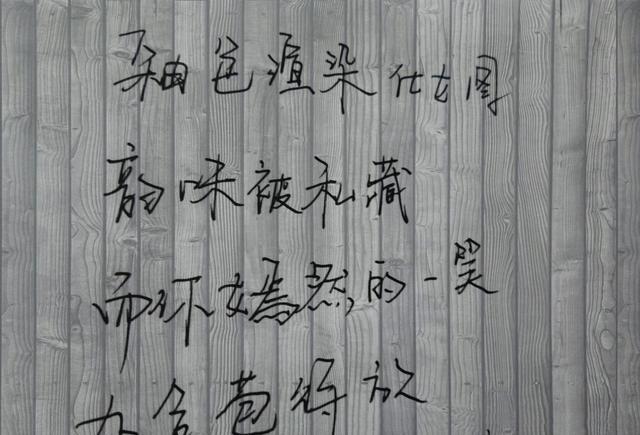 釉色渲染仕女图
韵味被私藏
而你嫣然的一笑
如含苞待放